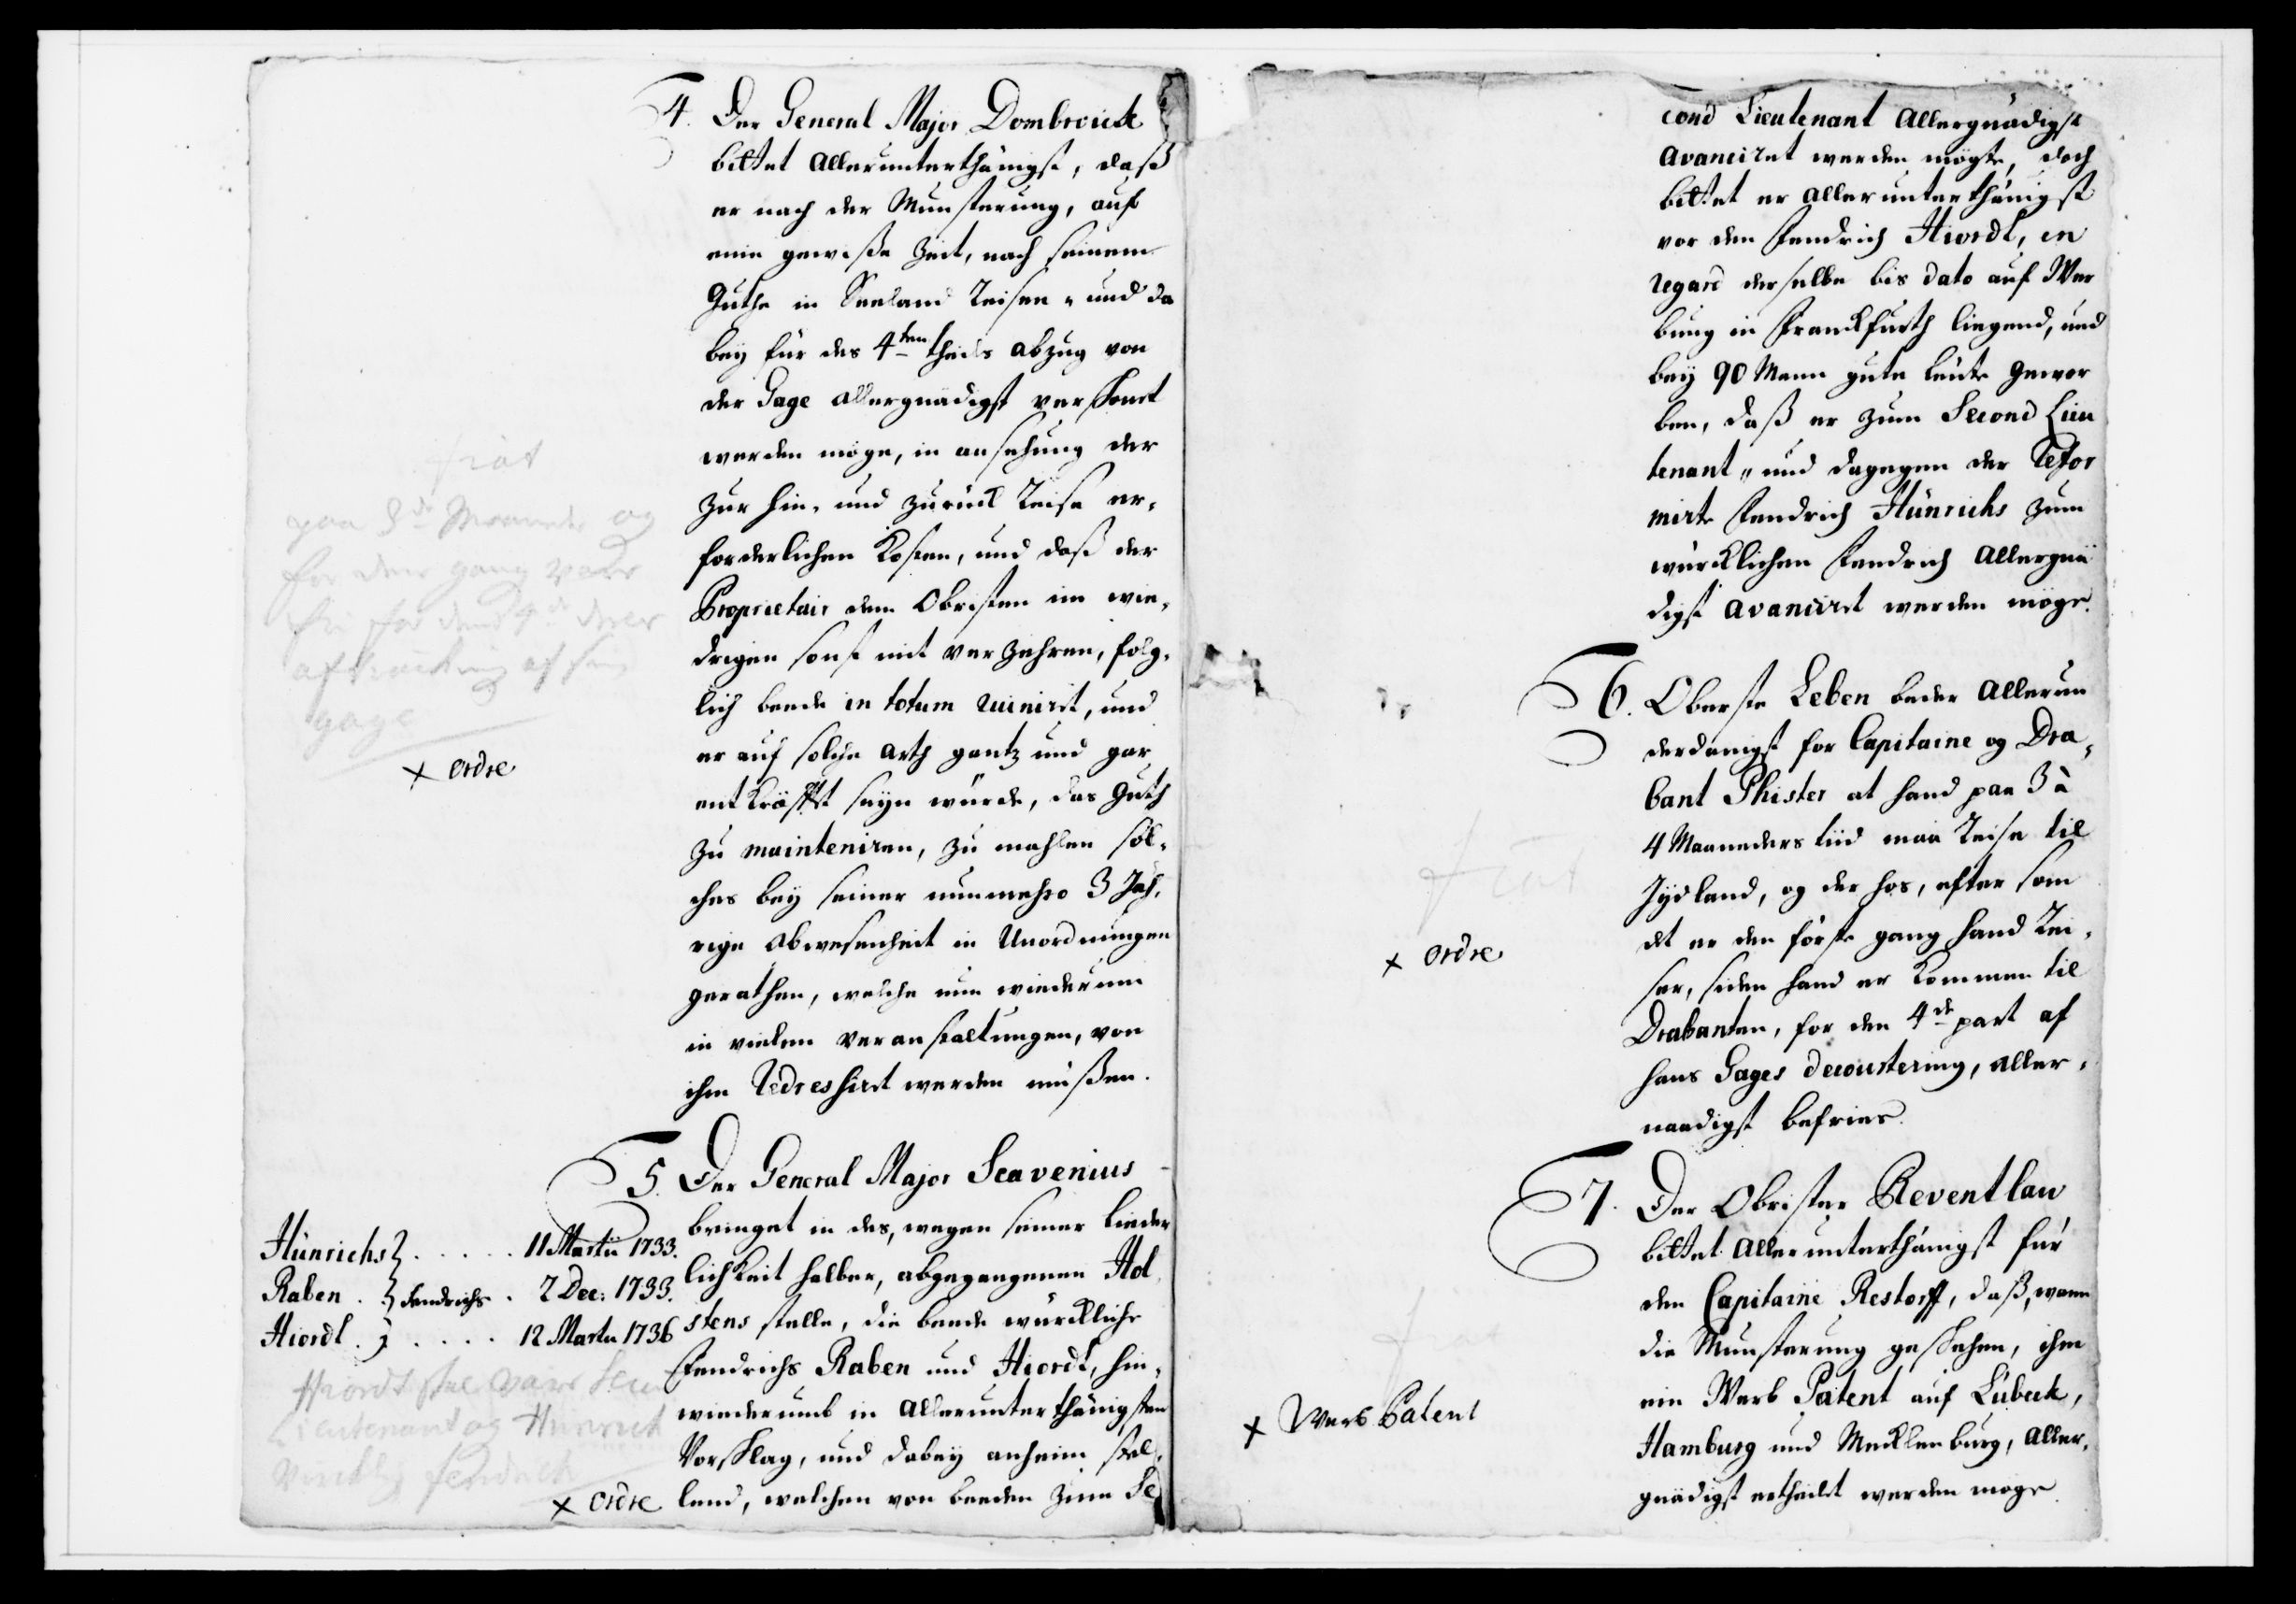 4. Der General Major Dombroick
bittet allerunterthänigst, daß
er nach der Munsterung, auf
eine gewisse Zeit, nach seinem
Guthe in Seeland reisen, und da
bey für des 4ten theils abzug von
der Gage allergnädigst verschont
werden möge, in ansehung der
zur hin- und zurück reise er-
forderlichen Kosten, und daß der
Proprietair dem Obristen im wie-
drigen sonst mit verzehren, folg-
lich beede in totum ruinirt, und
er auf solche arth gantz und gar
entkräfftet seyn würde, das Guth
zu mainteniren, zu mahlen sol-
ches bey seiner nunmehro 3 Jäh-
rige abwesenheit in Unordnungen
gerathen, welche nun wiederum
in vielen veranstaltungen, von
ihm redreshirt werden müßen.
frat
paa 3de Maaneder og
for den gang være
fri for den 4de deels
afkortning af sin
gage
x ordre
5. Der General Major Scavenius
bringet in des, wegen seiner lieder
lichkeit halber, abgegangenen Hol
stens stelle, die beede würckliche
Fendrichs Raben und Hiordt, hin-
wiederumb in allerunterthänigsten
Vorschlag, und dabey anheim stel-
lend, welchen von beeden zum Se
Hünrichs } . . . . . 11 Martii 1733.
Raben . } Fendrichs . 2 Dec: 1733.
Hiordt . } . . . . 12 Martii 1736
Hiordt skal være Sec
Lieutenant og Hünrich
Fendrich
x ordre
cond Lieutenant allergnädigst
avanciret werden mögte, doch
bittet er allerunterthänigst
vor den Fendrich Hiordt, en
regard derselbe bis dato auf Wer
bung in Franckfurth liegend, und
bey 90 Mann gute leute gewor
ben, daß er zum Second Lieu
tenant, und dagegen der Refor
mirte Fendrich Hünrichs zum
würcklichen Fendrich allergnä
digst avancirt werden möge.
6. Oberste Leben beder allerun
derdanigst for Capitaine og Dra-
bant Phister at hand paa 3 à
4 Maaneders tiid maa reise til
Jydland, og der hos, efter som
det er den förste gang hand rei-
ser, siden hand er kommen til
Drabanten, for den 4de part af
hans Gages decourtering, aller-
naadigst befries.
frat
x ordre
7. Der Obrister Reventlau
bittet allerunterthänigst für
den Capitaine Restorff, daß, wann
die Munsterung geschehen, ihm
ein Werb Patent auf Lübeck,
Hamburg und Mecklenburg, aller-
gnädigst ertheilet werden möge.
frat
x Werb Patent